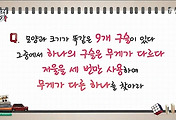 Q. 모양과 크기가 똑같은 9개 구슬이 있다
그중에서 하나의 구슬은 무게가 다르다
저울을 세 번만 사용하여
무게가 다른 하나를 찾아라